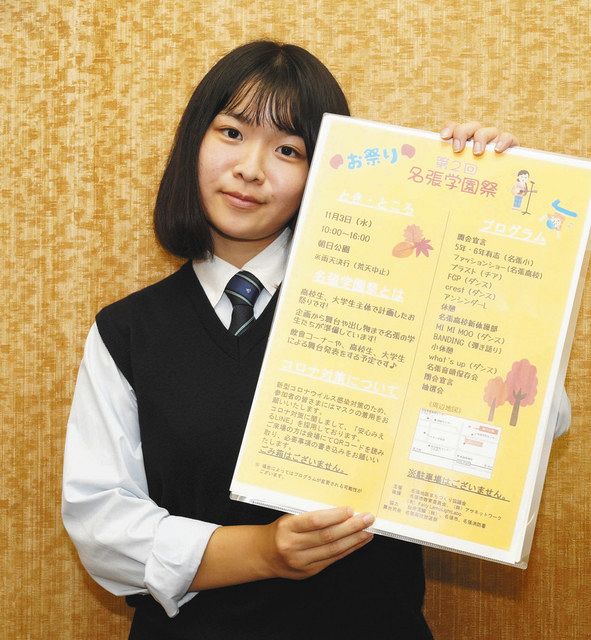 お祭り
第2回
名張学園祭
とき・ところ
11月3日(水)
10:00~16:00
朝日公園
※雨天決行(荒天中止)
名張学園祭とは
高校生、大学生主体で計画したお
祭りです!
企画から舞台や出し物まで名張の学
生たちが準備しています!
飲食コーナーや、高校生、大学生
による舞台発表をする予定です♪
コロナ対策について
新型コロナウイルス感染対策のため、
参加者の皆さまにはマスクの着用をお
願いいたします。
コロナ対策に関しまして、「安心みえ
るLINE」を採用しております。
ご来場の方は会場にてQRコードを読み
取り、必要事項の書き込みをお願いい
たします。
ごみ箱はございません。
※場合によってはプログラムが変更される可能性が
ございます。
プログラム
開会宣言
5年・6年有志(名張小)
ファッションショー(名張高校)
アラスト(チア)
FGP(ダンス)
crest(ダンス)
アンシンダーL
休憩
名張高校新体操部
MI MI MOO(ダンス)
BANDING(弾き語り)
小休憩
what's up(ダンス)
名張音頭保存会
閉会宣言
抽選会
《周辺地図》
※駐車場はございません。
主催